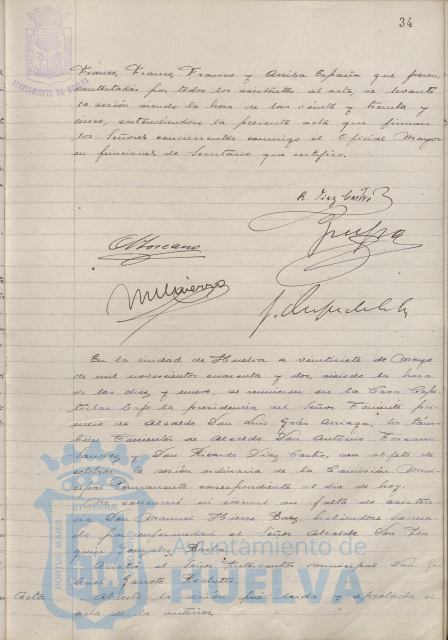 34
AYUNTAMIENTO DE HUELVA
Franco, Franco, Franco y Arriba España que fueron
contestadas por todos los asistentes al acto, se levantó
la sesión siendo la hora de las veinte y treinta y
cinco, extendiéndose la presente acta que firman
los Señores concurrentes conmigo el Oficial Mayor
en funciones de Secretario que certifico.
R. Diaz Castro
A. Toscano
En la ciudad de Huelva a veintisiete de Mayo
de mil novecientos cuarenta y dos, siendo la hora
de las diez y nueve, se reunieron en la Casa Capi-
tular bajo la presidencia del Señor Teniente pri-
mero de Alcalde Don Luis Grás Arriaga, los tam-
bién Tenientes de Alcalde Don Antonio Toscano
Sanchez y Don Ricardo Diaz Castro, con objeto de
celebrar la sesión ordinaria de la Comisión Muni-
cipal Permanente correspondiente al dia de hoy.
No concurrió ni excusó su falta de asisten-
cia Don Manuel Hierro Baez, habiéndose excusa-
do por enfermedad el Señor Alcalde Don Joa-
quin Gonzalez Barba.
Asistió el Señor Interventor municipal Don Ga-
briel Garrote
Acta Abierta la sesión fué leida y aprobada el
acta de la anterior.
PORTUS MARIS
ET TERRÆ
Ayuntamiento de
HUELVA